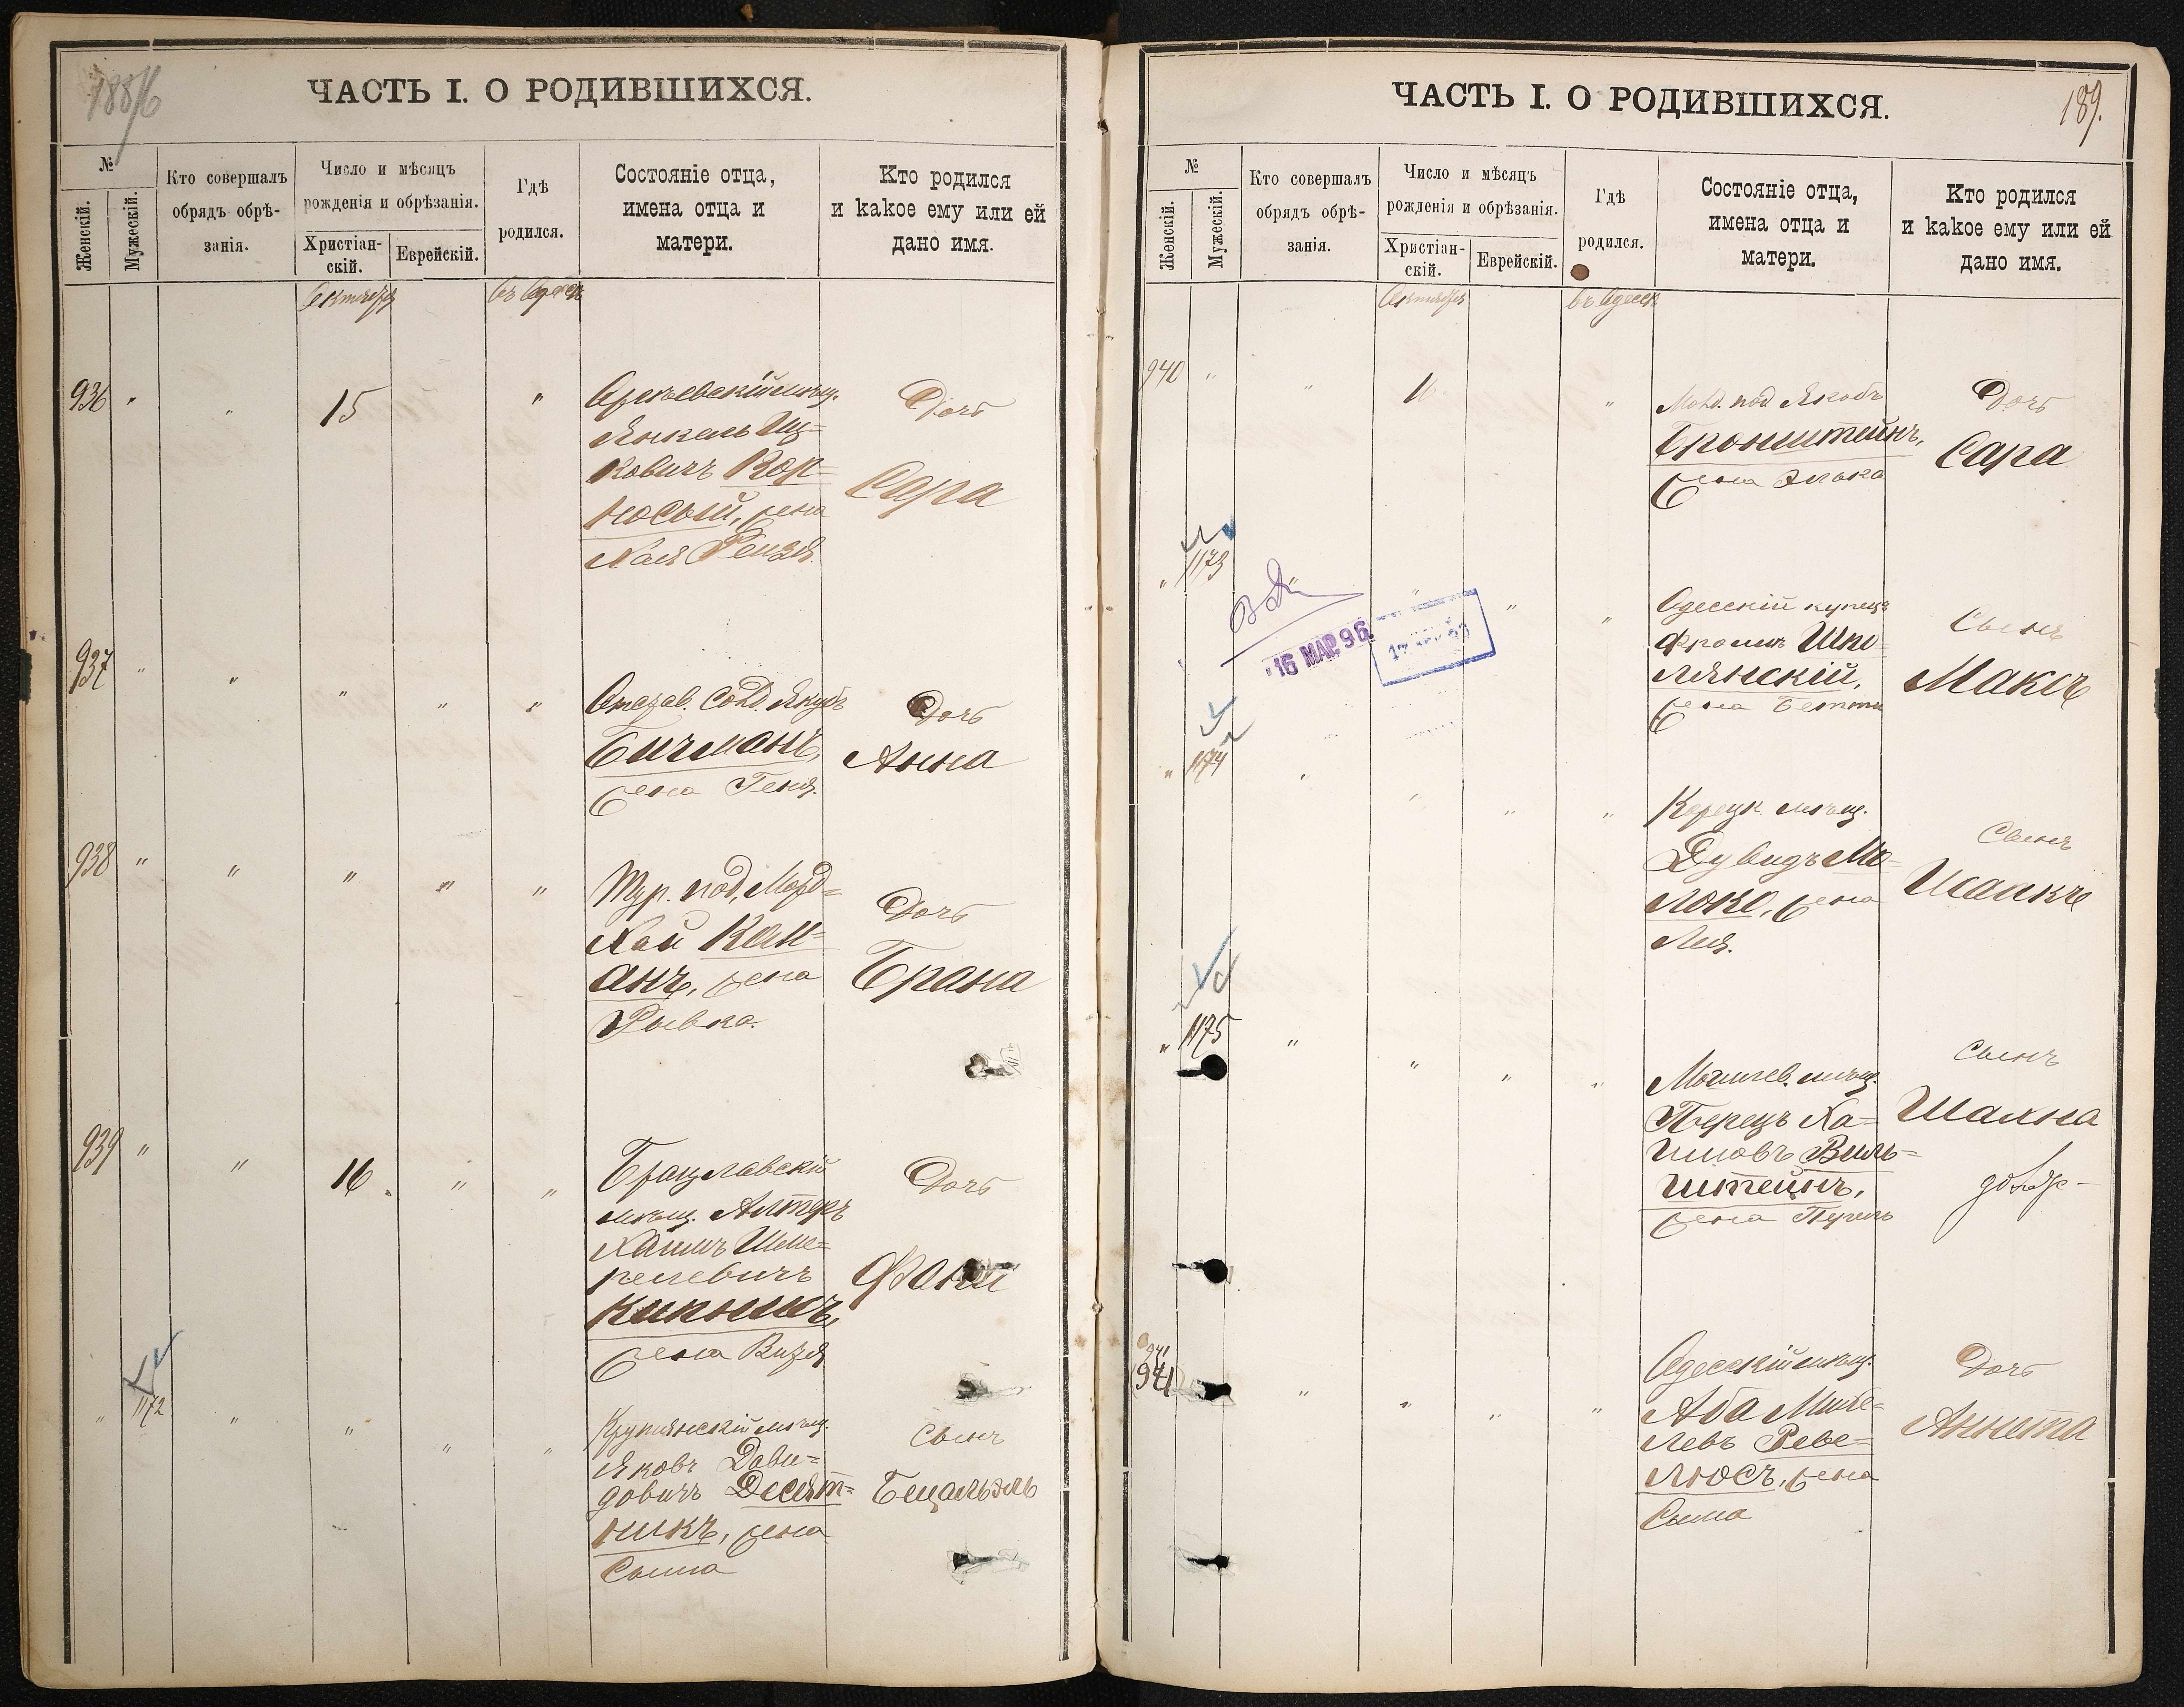 188/6
ЧАСТЬ I. О РОДИВШИХСЯ.
№
Женскій.
Мужескій.
Кто совершалъ
обрядъ обрѣ-
занія.
Число и мѣсяцъ
рожденія и обрѣзанія.
Христіан-
скій.
Еврейскій.
Гдѣ
родился.
Состояніе отца,
имена отца и
матери.
Кто родился
и какое ему или ей
дано имя.
Октября
въ Одессѣ
936 " " 15 "
Янкель Иц=
ковичъ Кор=
носый, жена
Хая Рейзя.
Дочь
Сара
937 " " " " "
Отстав. Солд. Якубъ
Бичманъ,
жена Геня.
Дочь
Анна
938 " " " " "
Тур. под. Морд=
хай Кап=
анъ, жена
Рывка.
Дочь
Брана
939 " " 16. " "
Брацлавскій
мѣщ. Алтеръ
Хаимъ Шме=
релевичъ
Кипнисъ,
жена Визя
Дочь
Фани
" 1172 " " " "
мѣщ.
Яковъ Дави=
довичъ Десят=
никъ, жена
Сима
Сынъ
Бецальэль
ЧАСТЬ I. О РОДИВШИХСЯ.
189.
№
Женскій.
Мужескій.
Кто совершалъ
обрядъ обрѣ-
занія.
Число и мѣсяцъ
рожденія и обрѣзанія.
Христіан-
скій.
Еврейскій.
Гдѣ
родился.
Состояніе отца,
имена отца и
матери.
Кто родился
и какое ему или ей
дано имя.
Октября
въ Одессѣ
940 " " 16 "
Молд. под. Якобъ
Бронштейнъ,
жена Элька
Дочь
Сара
" 1173 " " " "
16 МАР. 96
Одесскій купецъ
Фроимъ Шпо
лянскій,
жена Бетти
Сынъ
Максъ
" 1174 " " " "
Корецк. мѣщ.
Дувидъ Мо=
локе, жена
Лея.
Сынъ
" 1175 " " " "
Могилев. мѣщ.
Перецъ Ха=
имовъ Виль=
штейнъ,
жена Перель
Сынъ
Шашна
941
941 " " " "
Одесскій мѣщ.
Аба Михе=
левъ Реве=
люсъ, жена
Сима
Дочь
Аннета